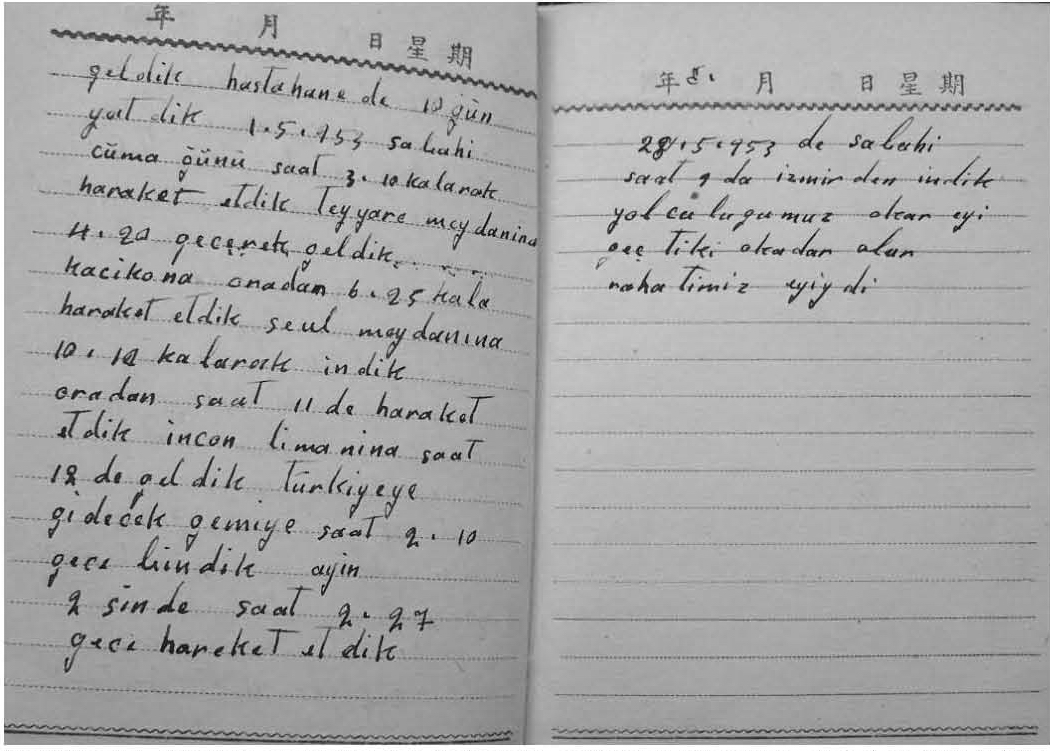 年 月 日 星 期
geldik hastahane de 12 gün
yat dik 1.5.953 sabahi
cüma günü saat 3.10 kalarak
haraket etdik Teyyare meydanina
4.20 geçerek geldik.......
kacikona oradan 6.25 kala
haraket etdik seul meydanına
10.12 kalarak indik
oradan saat 11 de haraket
etdik incon limanina saat
12 de gel dik türkiyeye
gideçek gemiye saat 2.10
geçe bindik ayin
2 sinde saat 2.27
geçe hareket et dik
年 月 日 星 期
28.5.953 de sabahi
saat 9 da izmir den indik
yolculugumuz okar eyi
geç tiki okadar olur
rahatimiz eyiydi